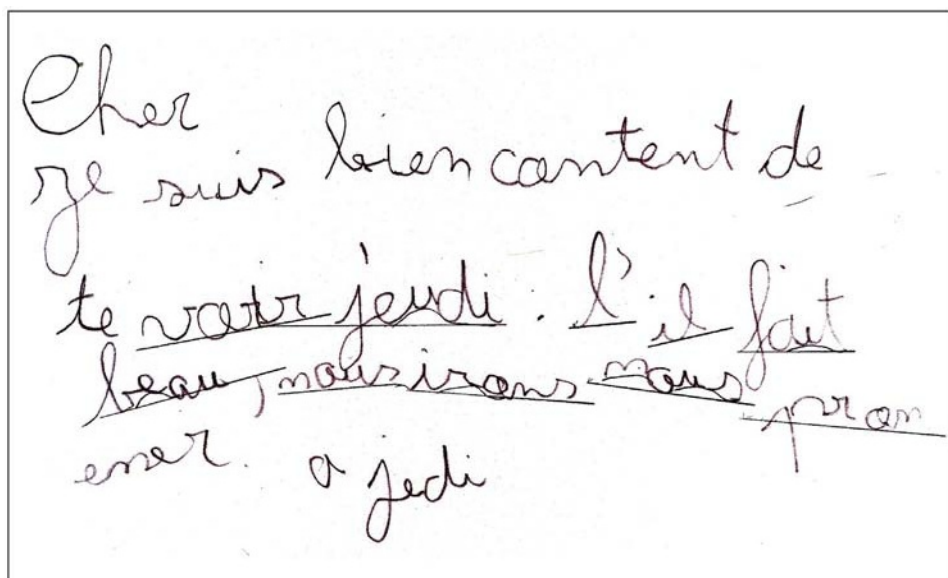 Cher
Je suis bien content de
te voir jeudi. S'il fait
beau, nous irons nous prom
ener. a jedi